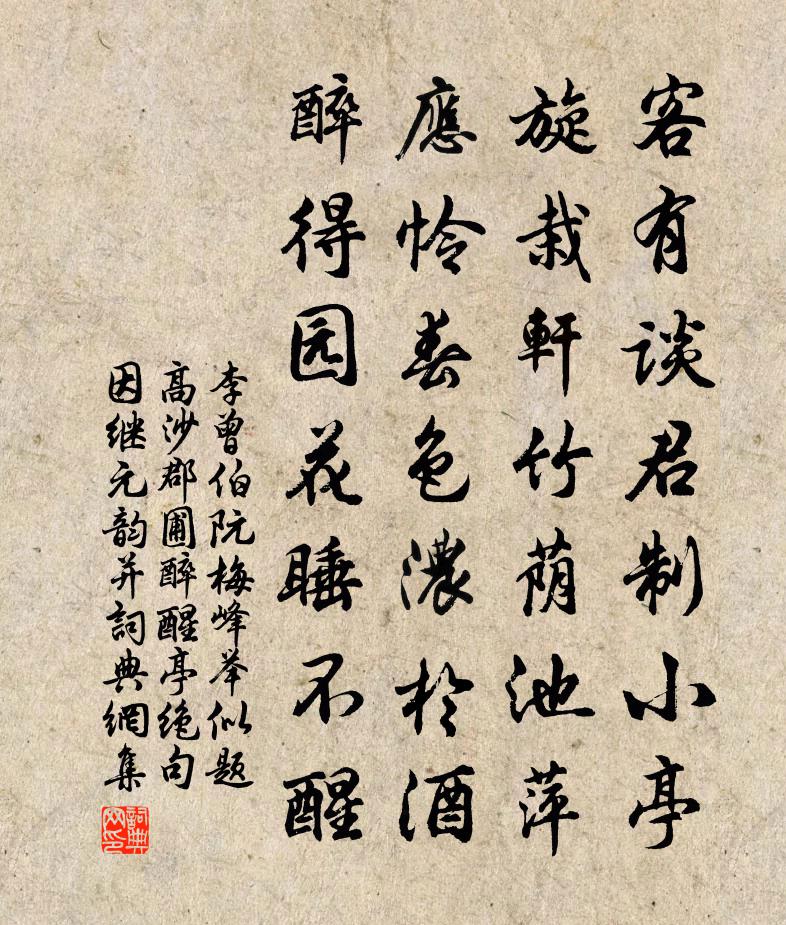 客有谈君制小亭
旋栽軒竹荫池萍
應怜春色濃於酒
醉得园花睡不醒
李曾伯阮梅峰举似题
高沙郡圃醉醒亭绝句
因继元韵并詞典網集
詞典网印